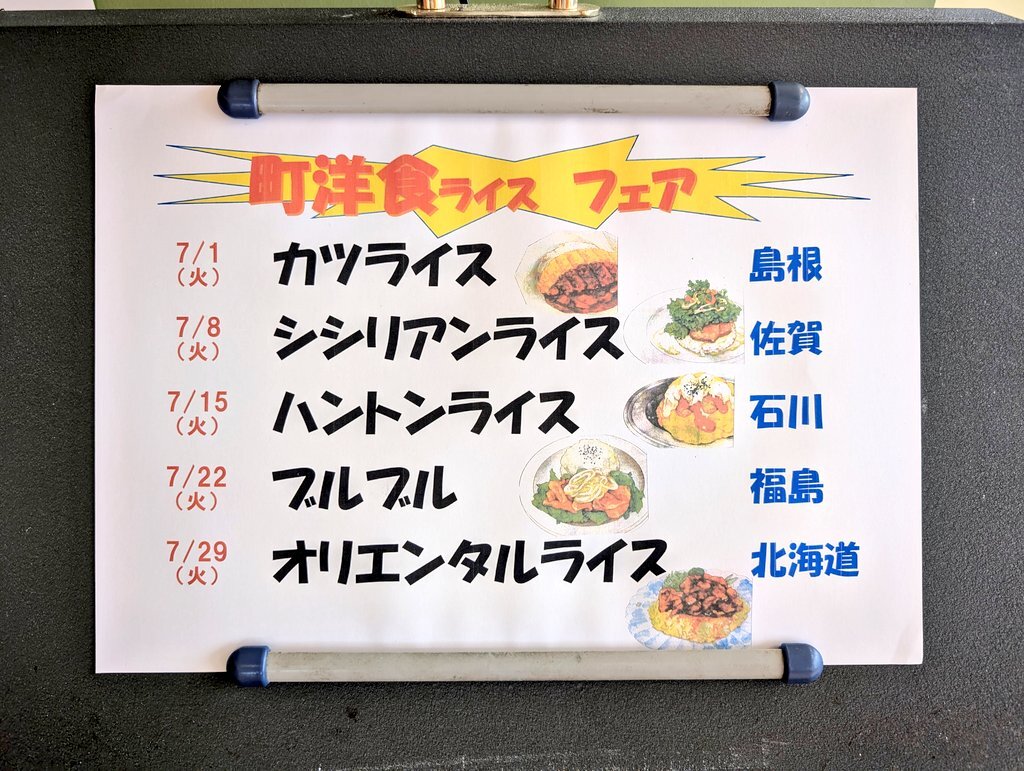 町洋食ライス フェア
7/1 カツライス 島根
(火)
7/8 シシリアンライス 佐賀
(火)
7/15 ハントンライス 石川
(火)
7/22 ブルブル 福島
(火)
7/29 オリエンタルライス 北海道
(火)